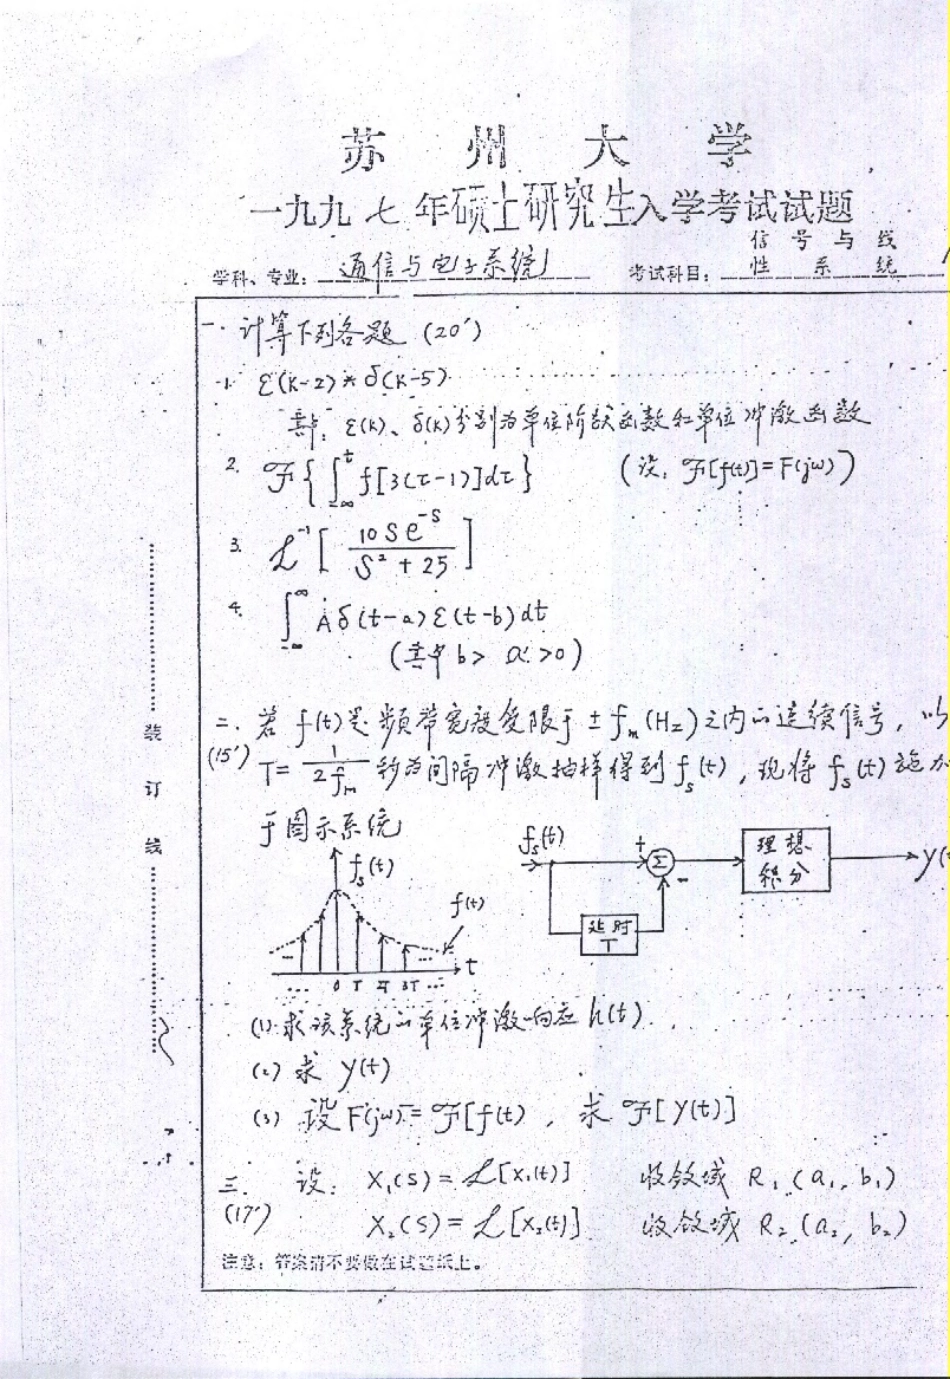 苏 州 大 学
一九九七年硕士研究生入学考试试题
学科、专业： 通信与电子系统 考试科目： 信号与线性系统
一. 计算下列各题 (20′)
1. ε(k-2)*δ(k-5)
其中: ε(k)、δ(k)分别为单位阶跃函数和单位冲激函数
2. ℱ{∫_{-∞}^{t} f[3(τ-1)]dτ} (设: ℱ[f(t)]=F(jω))
3. ℒ^{-1}[10Se^{-S}/(S²+25)]
4. ∫_{-∞}^{∞} Aδ(t-a)ε(t-b)dt
(其中 b> a >0)
二. 若 f(t)是频带宽度受限于 ±f_m(Hz)之内的连续信号, 以
(15′) T=1/(2f_m) 秒为间隔冲激抽样得到 f_s(t), 现将 f_s(t)施加
于图示系统
f_s(t)
f(t)
t
... 0 T 2T 3T ...
f_s(t) + Σ - 理想积分 y(t
延时 T
(1) 求该系统的单位冲激响应 h(t)
(2) 求 y(t)
(3) 设 F(jω)=ℱ[f(t), 求 ℱ[y(t)]
三. 设: X₁(S)=ℒ[x₁(t)] 收敛域 R₁(a₁, b₁)
(17′) X₂(S)=ℒ[x₂(t)] 收敛域 R₂(a₂, b₂)
注意：答案请不要做在试题纸上。
装
订
线